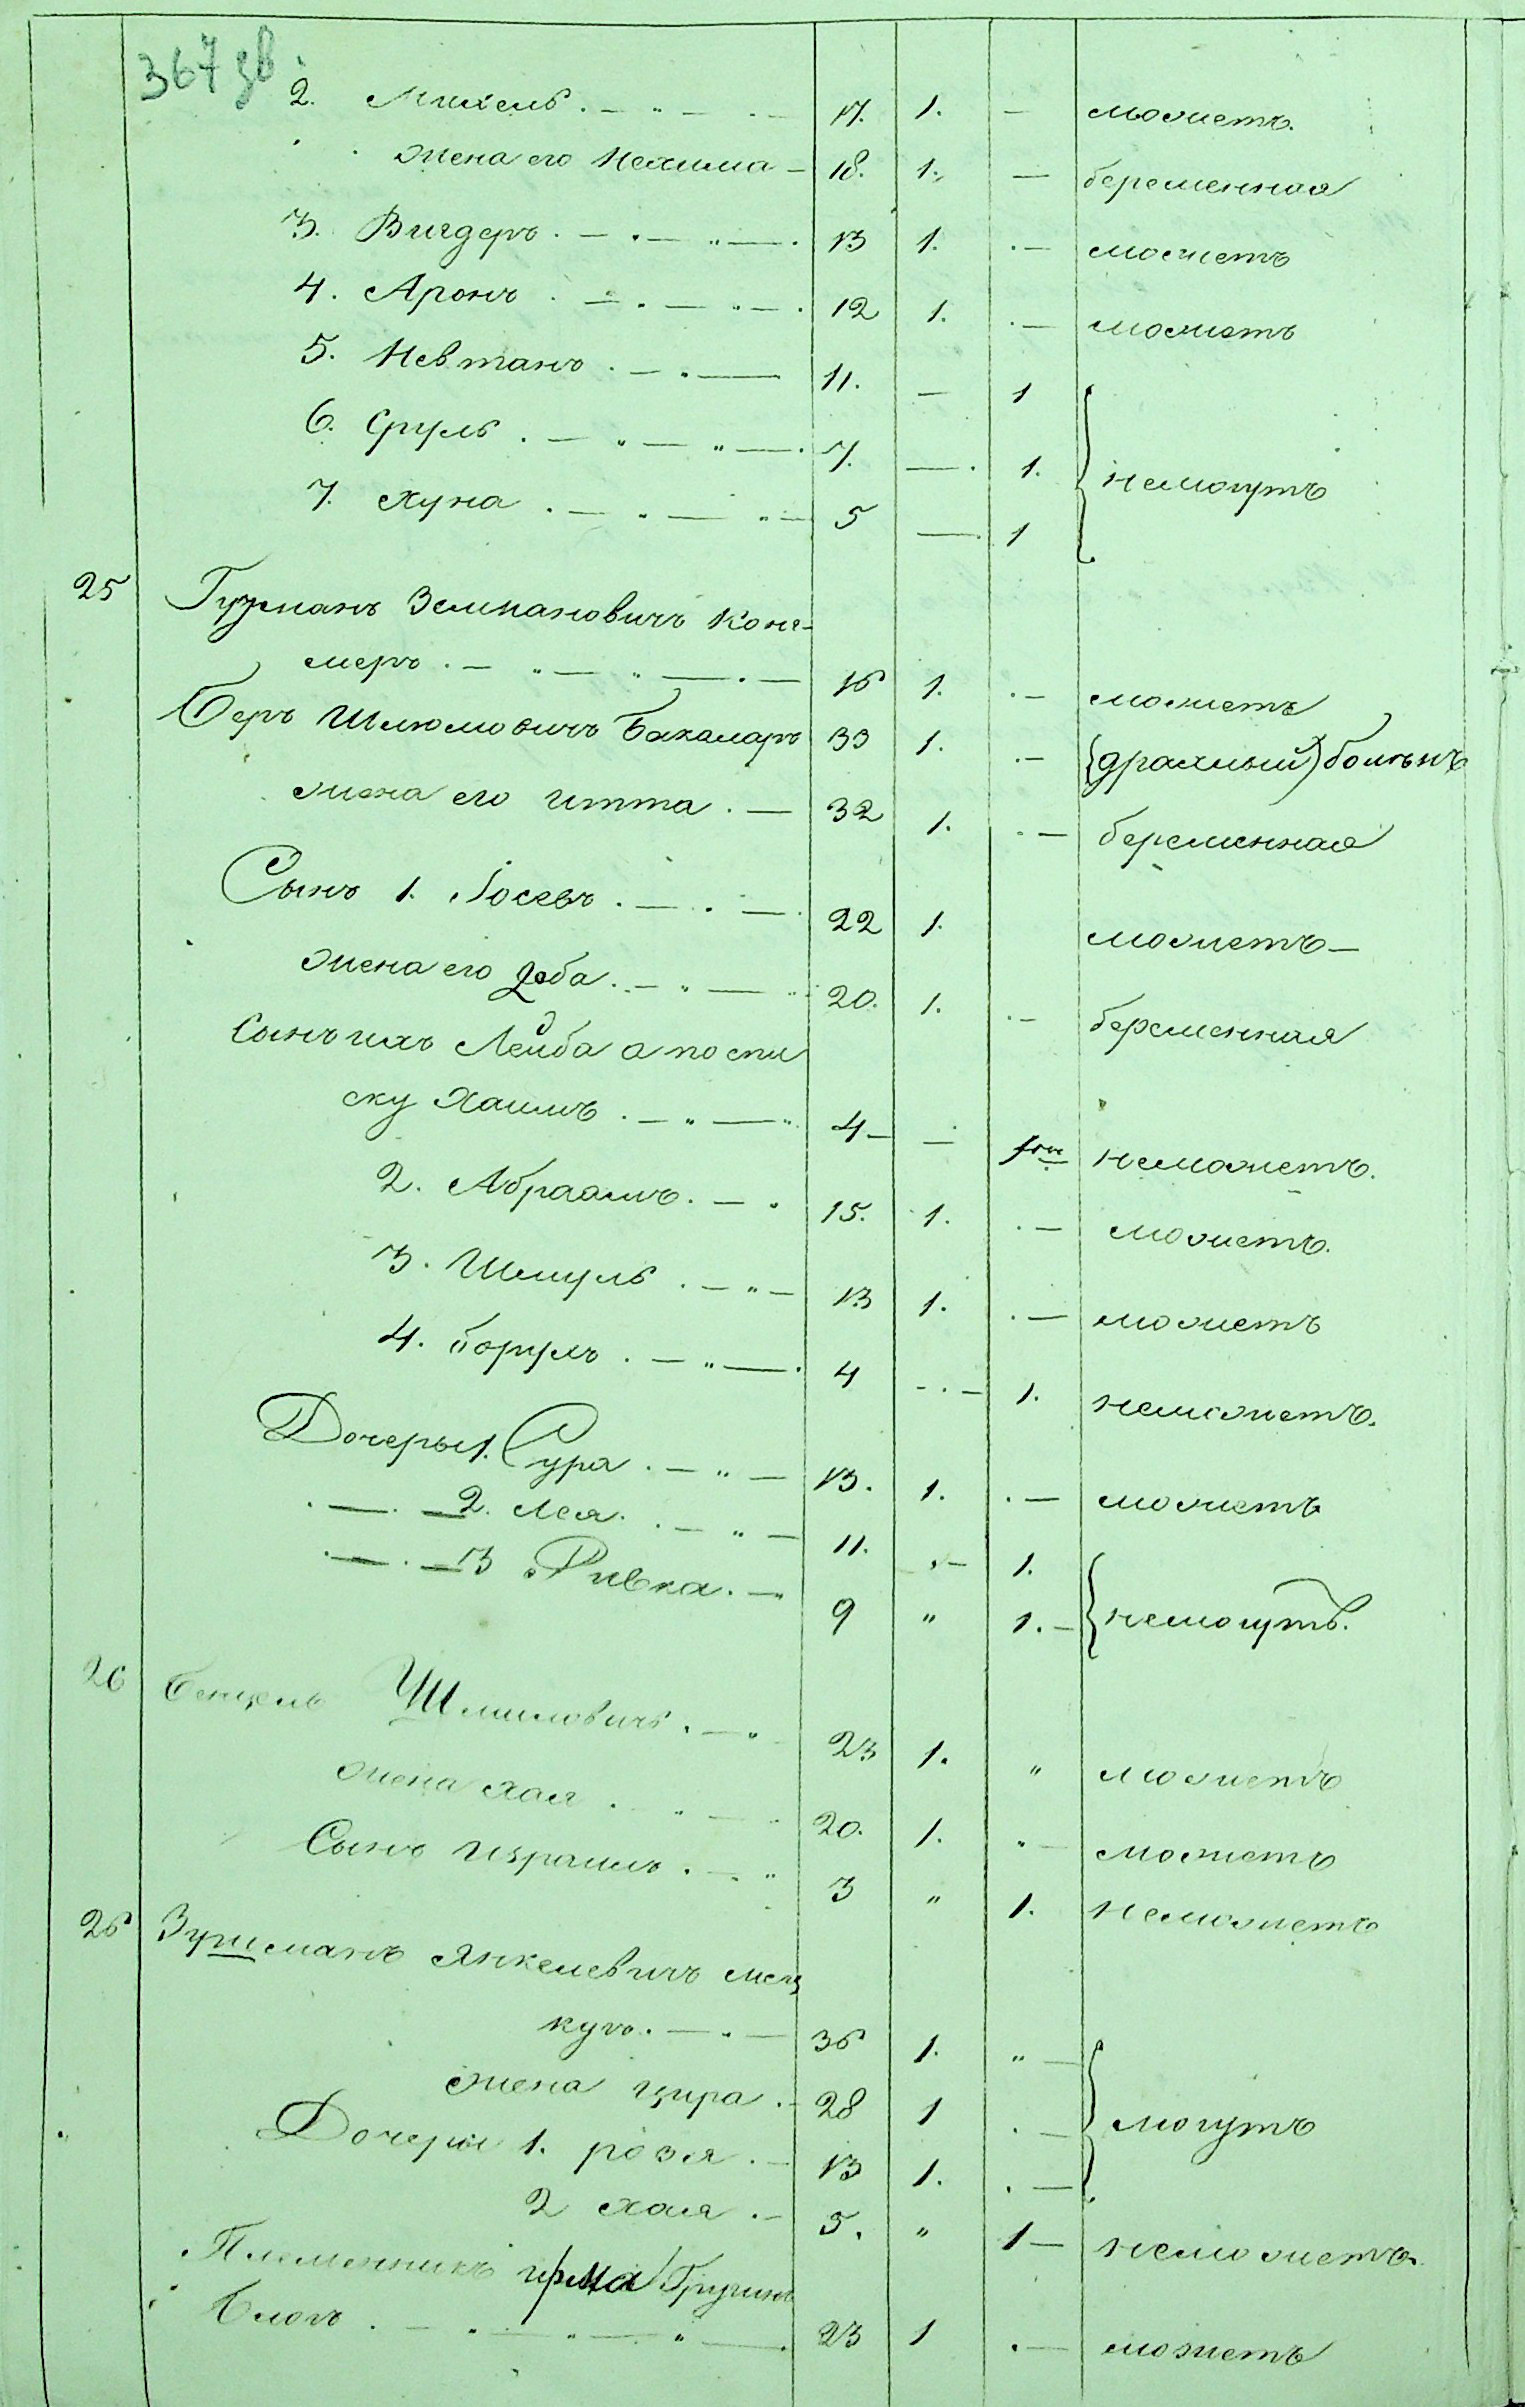 367 зв.
2. Михель . — „ — . — 17. 1. — можетъ.
жена его Нехима — 18. 1. — беременная
3. Вигдеръ . — . — „ — . 13 1. . — можетъ
4. Аронъ . — . — „ — . 12 1. . — можетъ
5. Невтанъ . — . — 11. — 1
6. Сруль . — „ — „ — . 7. — . 1. немогутъ
7. Хуна . — „ — „ — 5 — . 1
25 Гузманъ Зелмановичъ Коне-
меръ . — „ — „ — . — 16 1. . — можетъ
Беръ Шлюмовичъ Бакаларъ 33 1. . — (драхлый) боленъ
жена его Итта . — 32 1. . — беременная
Сынъ 1. Іосевъ . — . — . 22 1. можетъ —
жена его . — „ — 20. 1. . — беременная
Сынъ ихъ Лейба а по спи
ску Хаимъ . — „ — „ 4 — — неможетъ.
2. Абраамъ . — . 15. 1. . — можетъ.
3. Шмуль . — „ — 13 1. . — можетъ
4. Борухъ . — „ — . 4 - . — 1. неможетъ.
Дочеры 1. Сура . — „ — 13. 1. . — можетъ
. — . — 2. Лея . . — „ — 11. . — 1.
. — . — 3 Ривка . — 9 „ 1. — немогутъ.
26 Бенцель Шлиомовичъ . — „ 23 1. „ можетъ
жена Хая . . „ — 20. 1. „ — можетъ
Сынъ Израиль . — . „ 3 „ 1. неможетъ
26 Зушманъ Янкелевичъ Мец
керъ . — . — 36 1. „ —
жена Цира . — 28 1 . — могутъ
Дочеры 1. розя . — 13 1. . — .
2 Хая . — 5. „ 1 — неможетъ.
Племенникъ
Блохъ . — „ — „ — „ — . 23 1 . — можетъ